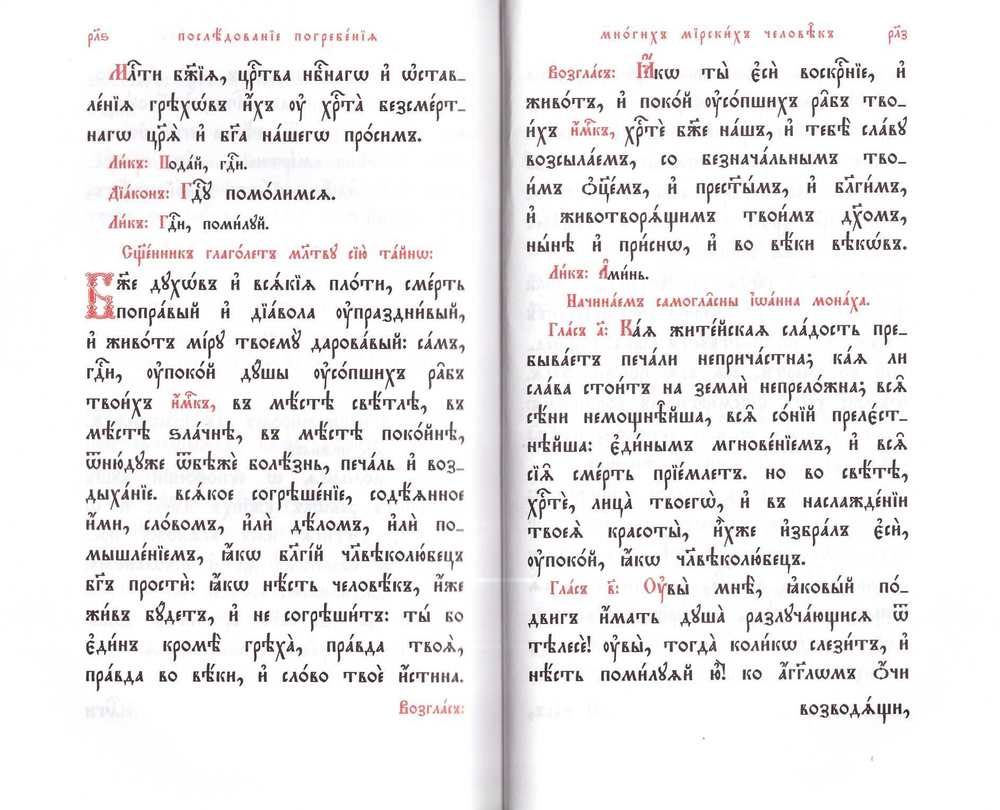 рл҃ѕ послѣ́дованїе погребе́нїѧ
Млⷭ҇ти бж҃їѧ, црⷭ҇тва нбⷭ҇нагѡ и҆ ѡ҆ставле-
ле́нїѧ грѣхѡ́въ и҆́хъ ᲂу҆ хрⷭ҇та̀ безсме́рт-
нагѡ цр҃ѧ̀ и҆ бг҃а на́шегѡ про́симъ.
Ли́къ: Пода́й, гдⷭ҇и.
Дїа́конъ: Гдⷭ҇ꙋ помо́лимсѧ.
Ли́къ: Гдⷭ҇и, поми́лꙋй.
Сщ҃е́нникъ глаго́летъ мл҃твꙋ сїю̀ та́йнѡ:
Бж҃е дꙋхѡ́въ и҆ всѧ́кїѧ пло́ти, сме́рть
попра́вый и҆ дїа́вола ᲂу҆праздни́вый,
и҆ живо́тъ мі́рꙋ твоемꙋ̀ дарова́вый: са́мъ,
гдⷭ҇и, ᲂу҆поко́й дꙋ́шы ᲂу҆со́пшихъ ра̑бъ
твои́хъ и҆́мⷬ҇къ, въ мѣ́стѣ свѣ́тлѣ, въ
мѣ́стѣ ѕла́чнѣ, въ мѣ́стѣ поко́йнѣ,
ѿню́дꙋже ѿбѣжѐ болѣ́знь, печа́ль и҆ воз-
дыха́нїе. всѧ́кое согрѣше́нїе, содѣ́ѧнное
и҆́ми, сло́вомъ, и҆лѝ дѣ́ломъ, и҆лѝ по-
мышле́нїемъ, ꙗ҆́кѡ бл҃гі́й чл҃вѣколю́бецъ
бг҃ъ простѝ: ꙗ҆́кѡ нѣ́сть человѣ́къ, и҆́же
жи́въ бꙋ́детъ, и҆ не согрѣши́тъ: ты́ бо
є҆ди́нъ кромѣ̀ грѣха̀, пра́вда твоѧ̀,
пра́вда во вѣ́ки, и҆ сло́во твоѐ и҆́стина.
Возгла́съ:
мно́гихъ мїрски́хъ человѣ̑къ рл҃з
Возгла́съ: Ꙗ҆́кѡ ты̀ є҆сѝ воскрⷭ҇нїе, и҆
живо́тъ, и҆ поко́й ᲂу҆со́пшихъ ра̑бъ тво-
и́хъ и҆́мⷬ҇къ, хрⷭ҇тѐ бж҃е на́шъ, и҆ тебѣ̀ сла́вꙋ
возсыла́емъ, со безнача́льнымъ тво-
и́мъ ѻ҆ц҃е́мъ, и҆ прест҃ы́мъ, и҆ бл҃ги́мъ,
и҆ животворѧ́щимъ твои́мъ дх҃омъ,
ны́нѣ и҆ при́снѡ, и҆ во вѣ́ки вѣкѡ́въ.
Ли́къ: А҆ми́нь.
Начина́емъ самогла̑сны і҆ѡа́нна мона́ха.
Гла́съ а҃: Ка́ѧ жите́йскаѧ сла́дость пре-
быва́етъ печа́ли неприча́стна; ка́ѧ ли
сла́ва стои́тъ на землѝ непрело́жна; всѧ̑
сѣ́ни немощнѣ̑йша, всѧ̑ со́нїй преле́ст-
нѣйша: є҆ди́нымъ мгнове́нїемъ, и҆ всѧ̑
сїѧ̑ сме́рть прїе́млетъ. но во свѣ́тѣ,
хрⷭ҇тѐ, лица̀ твоегѡ̀, и҆ въ наслажде́нїи
твоеѧ̀ красоты̀, и҆̀хже и҆збра́лъ є҆сѝ,
ᲂу҆поко́й, ꙗ҆́кѡ чл҃вѣколю́бецъ.
Гла́съ в҃: Оу҆вы̀ мнѣ̀, ꙗ҆ковы́й по́-
двигъ и҆́мать дꙋша̀ разлꙋча́ющисѧ ѿ
тѣлесѐ! ᲂу҆вы̀, тогда̀ коли́кѡ слези́тъ, и҆
нѣ́сть поми́лꙋѧй ю҆̀! ко а҆́гг҃лѡмъ ѻ҆́чи
возводѧ́щи,